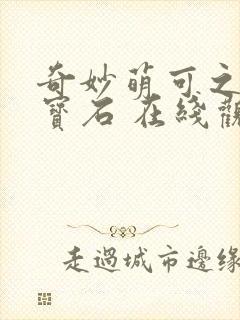 奇妙萌可之
寶石 在綫觀
走過城市邊緣